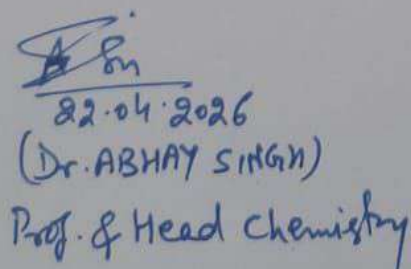 22.04.2026
(Dr. ABHAY SINGH)
Prof. & Head Chemistry